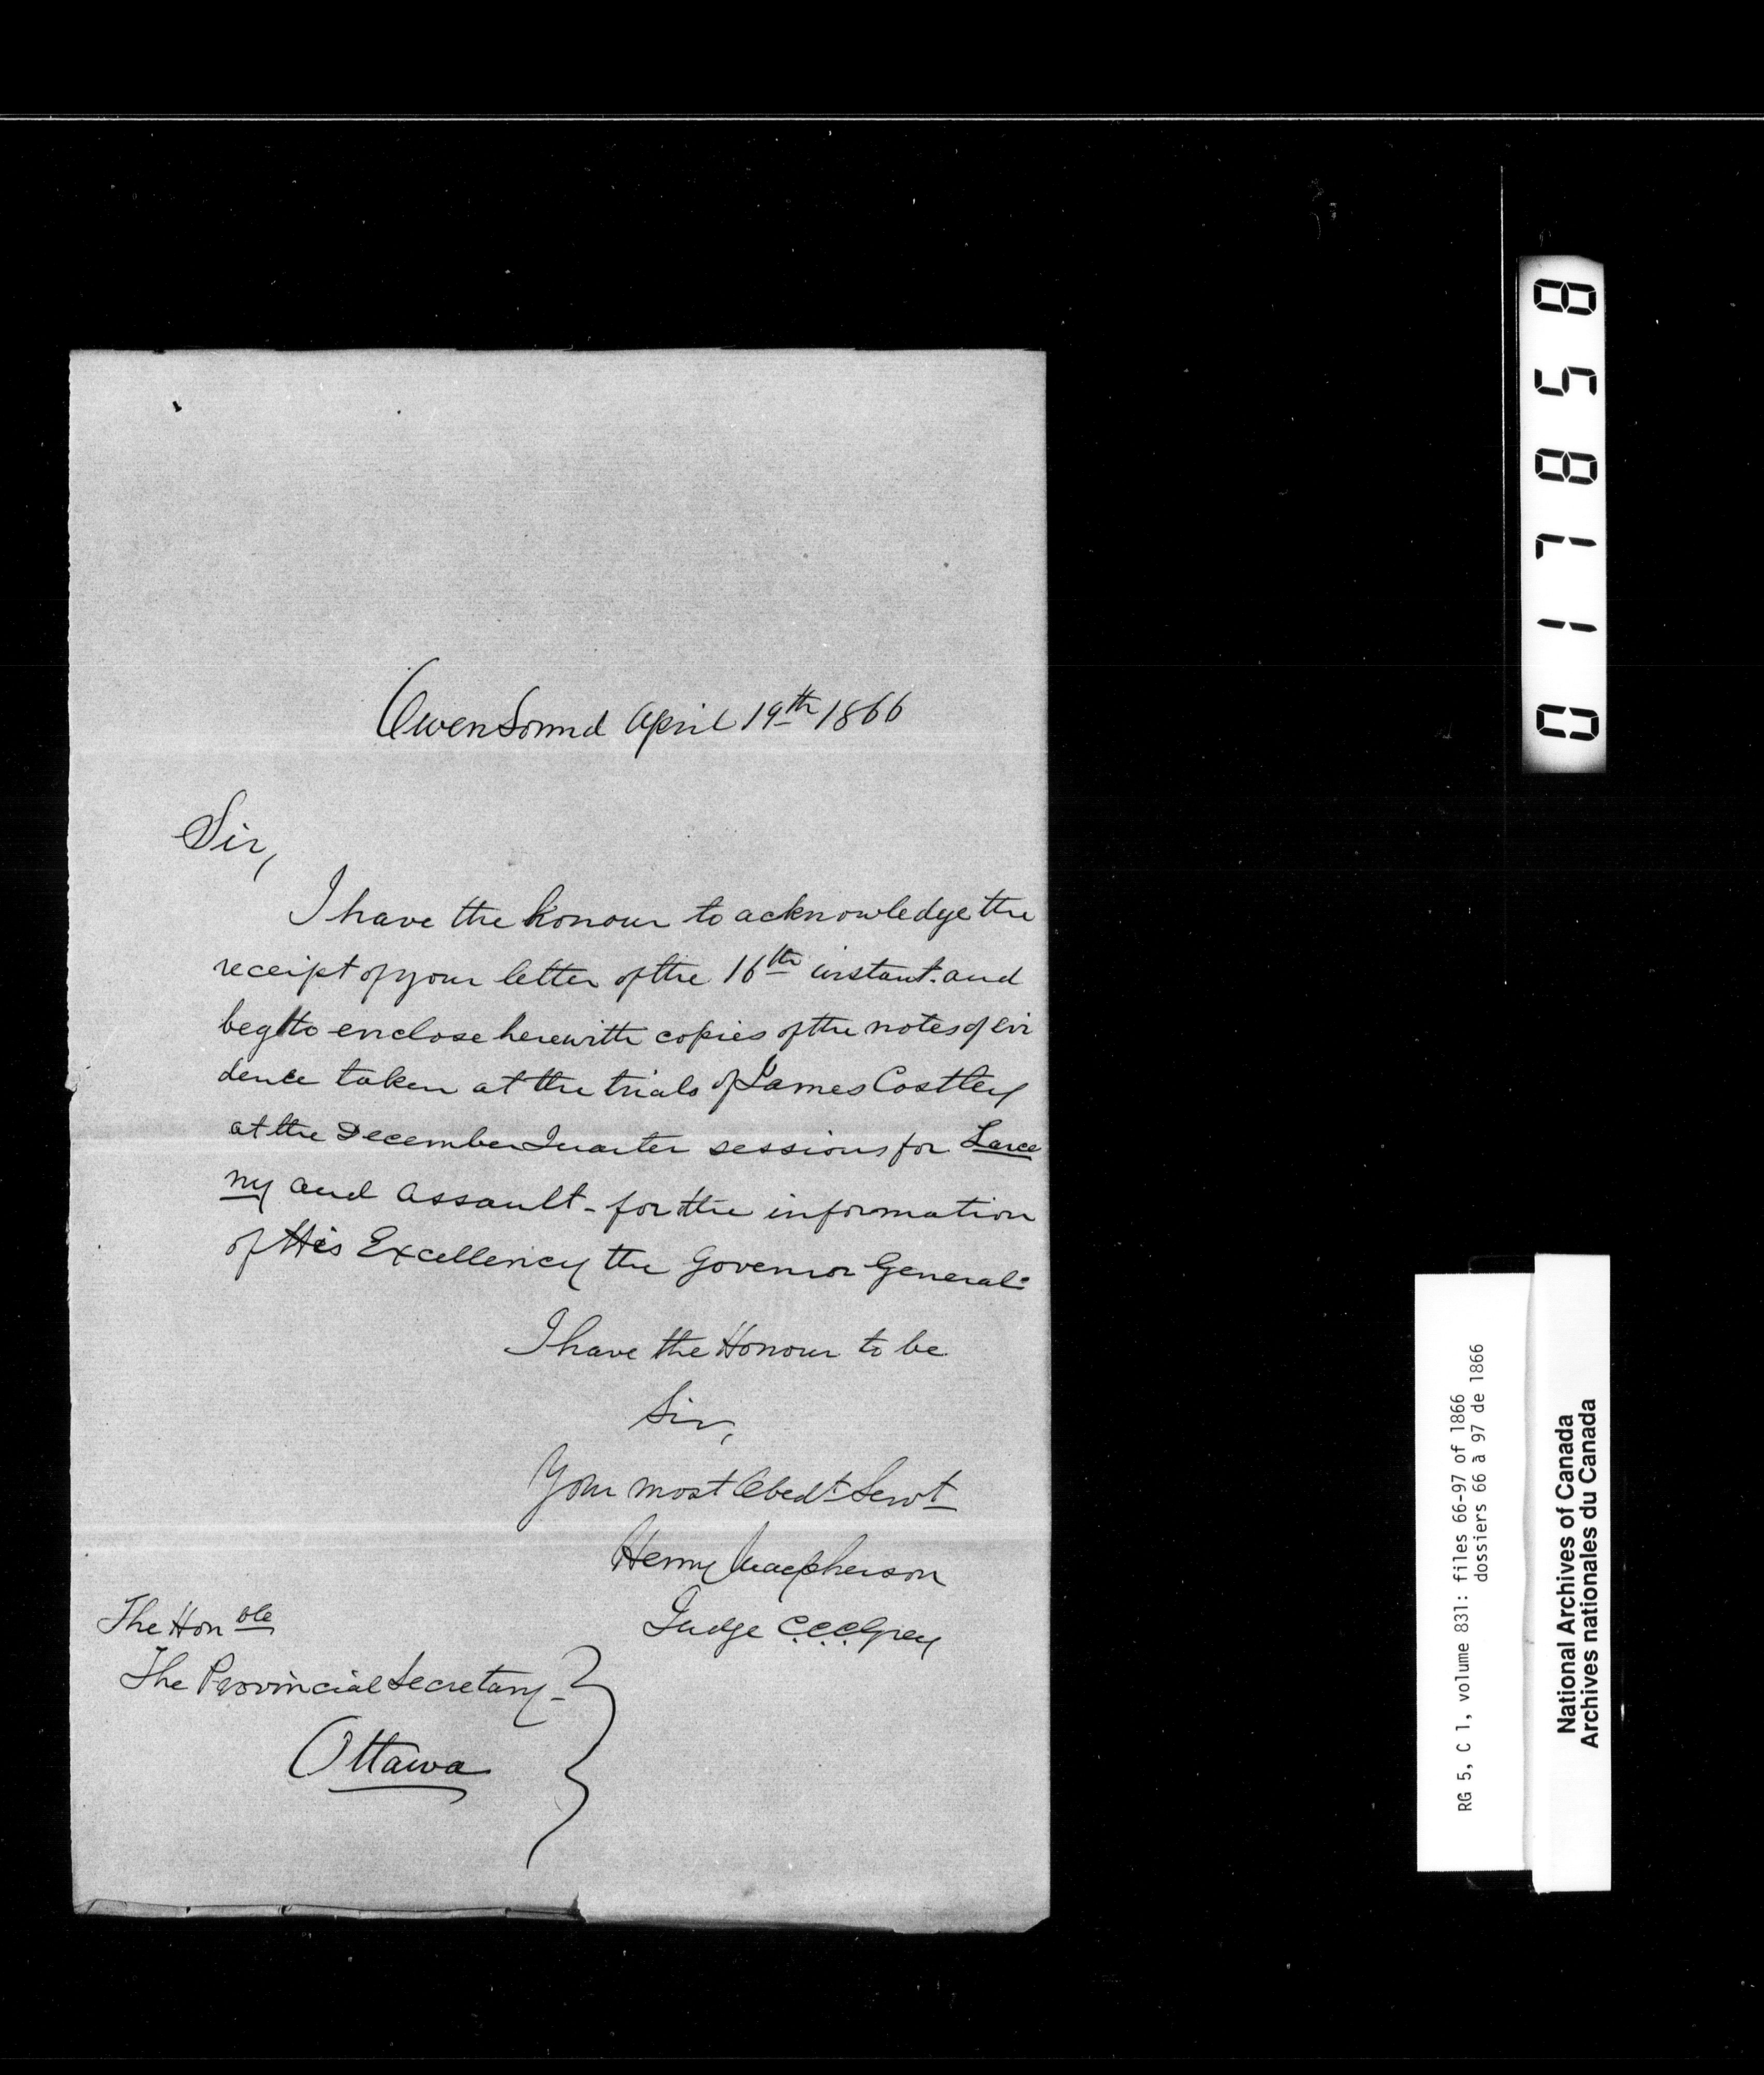 Owen Sound April 19th 1866
Sir,
I have the honour to acknowledge the
receipt of your letter of the 16th instant. and
beg to enclose herewith copies of the notes of evi
dence taken at the trials of James Costley
at the December Quarter sessions for Larce
ny and assault - for the information
of His Excellency the Governor General.
I have the Honour to be
Sir,
Your most Obedt Servt
Henry Macpherson
Judge C.C.C. Grey
The Honble
The Provincial Secretary -
Ottawa
017858
RG 5, C 1, volume 831: files 66-97 of 1866
dossiers 66 à 97 de 1866
National Archives of Canada
Archives nationales du Canada